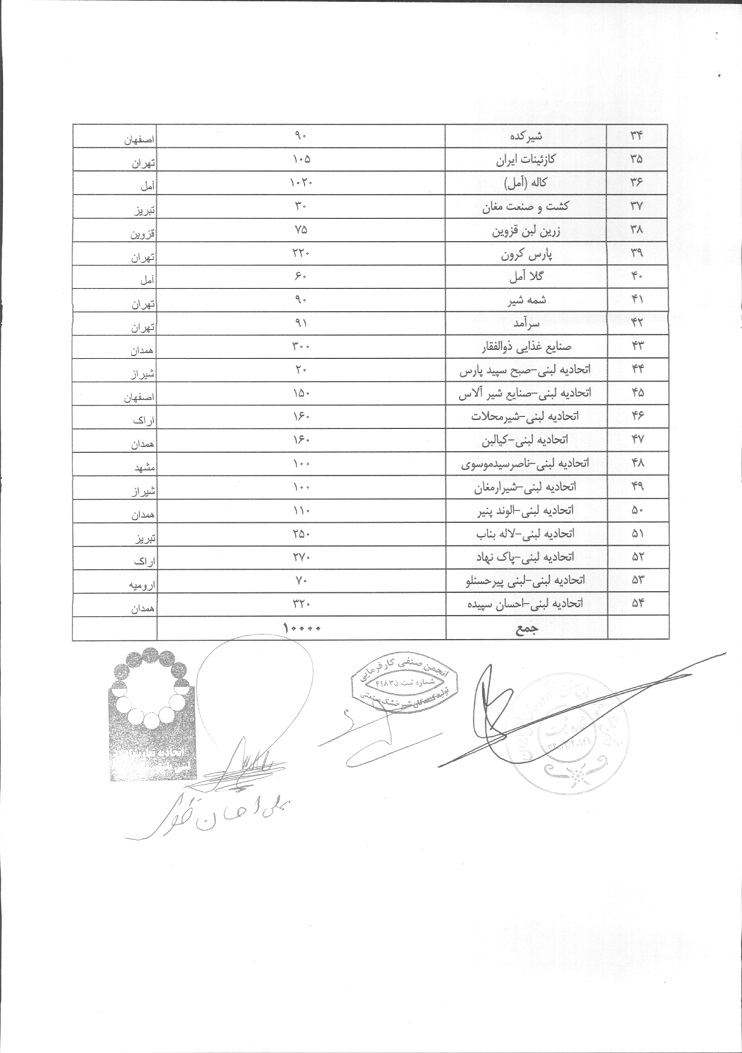 ۳۴ شیرکده ۹۰ اصفهان
۳۵ کازئینات ایران ۱۰۵ تهران
۳۶ کاله (آمل) ۱۰۲۰ آمل
۳۷ کشت و صنعت مغان ۳۰ تبریز
۳۸ زرین لبن قزوین ۷۵ قزوین
۳۹ پارس کرون ۲۲۰ تهران
۴۰ گلا آمل ۶۰ آمل
۴۱ شمه شیر ۹۰ تهران
۴۲ سرآمد ۹۱ تهران
۴۳ صنایع غذایی ذوالفقار ۳۰۰ همدان
۴۴ اتحادیه لبنی-صبح سپید پارس ۲۰ شیراز
۴۵ اتحادیه لبنی-صنایع شیر آلاس ۱۵۰ اصفهان
۴۶ اتحادیه لبنی-شیرمحلات ۱۶۰ اراک
۴۷ اتحادیه لبنی-کیالبن ۱۶۰ همدان
۴۸ اتحادیه لبنی-ناصرسیدموسوی ۱۰۰ مشهد
۴۹ اتحادیه لبنی-شیرارمغان ۱۰۰ شیراز
۵۰ اتحادیه لبنی-الوند پنیر ۱۱۰ همدان
۵۱ اتحادیه لبنی-لاله بناب ۲۵۰ تبریز
۵۲ اتحادیه لبنی-پاک نهاد ۲۷۰ اراک
۵۳ اتحادیه لبنی-لبنی پیرحسنلو ۷۰ ارومیه
۵۴ اتحادیه لبنی-احسان سپیده ۳۲۰ همدان
جمع ۱۰۰۰۰
انجمن صنفی کارفرمایی
شماره ثبت: ۴۱۸۳۵
تولیدکنندگان شیر خشک صنعتی
اتحادیه